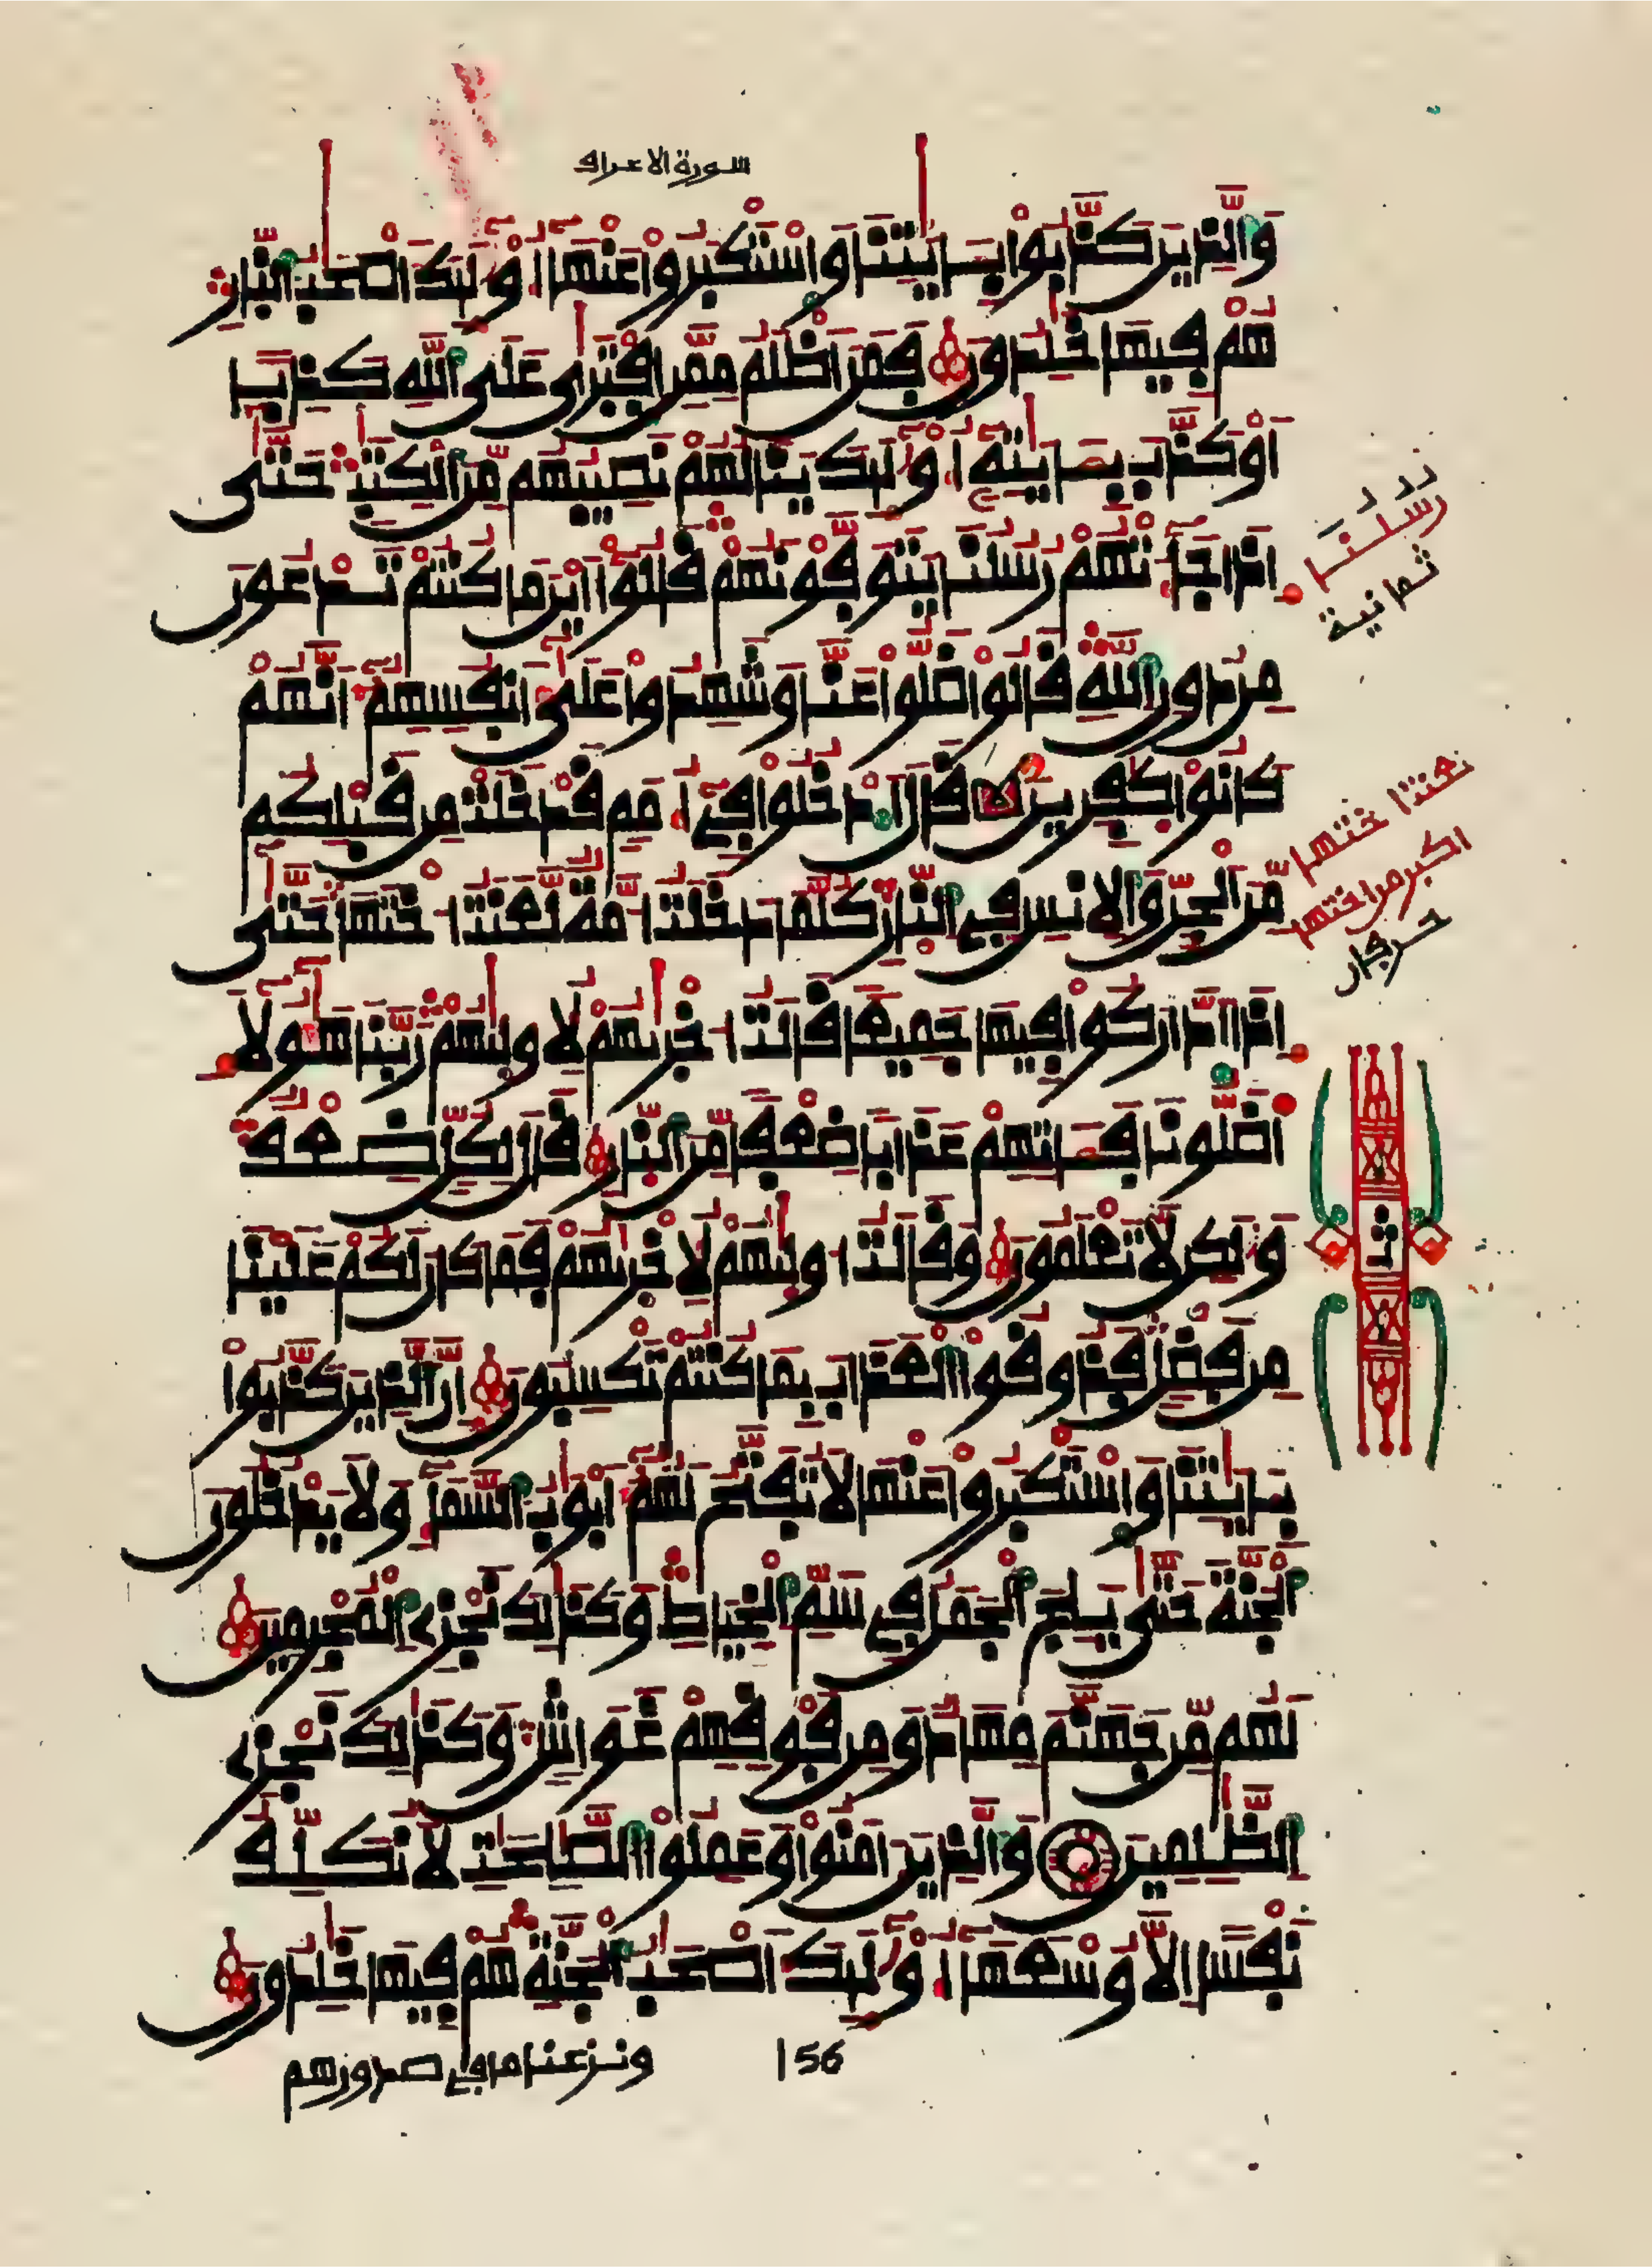 سورة الاعراف
وَالَّذِينَ كَذَّبُواْ بِـَٔايَٰتِنَا وَاسْتَكْبَرُواْ عَنْهَآ أُوْلَٰٓئِكَ أَصْحَٰبُ النّارِ
هُمْ فِيهَا خَٰلِدُونَ فَمَنَ اَظْلَمُ مِمَّنِ اِفْتَرَىٰ عَلَى اَللَّهِ كَذِباً
اَوْ كَذَّبَ بِـَٔايَٰتِهِ أُوْلَٰٓئِكَ يَنَالُهُمْ نَصِيبُهُم مِّنَ اَلْكِتَٰبِ حَتَّىٰ
إِذَا جَآءَتْهُمْ رُسُلُنَا يَتَوَفَّوْنَهُمْ قَالُوٓاْ أَيْنَ مَا كُنتُمْ تَدْعُونَ
رُسُلُنَا
ثمانية
مِن دُونِ اِللَّهِ قَالُواْ ضَلُّواْ عَنَّا وَشَهِدُواْ عَلَىٰٓ أَنفُسِهِمُ أَنَّهُمْ
كَانُواْ كَٰفِرِينَ قَالَ اَدْخُلُواْ فِىٓ أُمَمٍ قَدْ خَلَتْ مِن قَبْلِكُم
مِّنَ اَلْجِنِّ وَالِانسِ فِى اِلنّارِ كُلَّمَا دَخَلَتُ امَّةٌ لَّعَنَتُ اخْتَهَا حَتَّىٰ
لعنتا ختها
اكبر من اختها
حرفان
إِذَا اَدَّارَكُواْ فِيهَا جَمِيعاً قَالَتُ اخْرَىٰهُمْ لُأولَىٰهُمْ رَبَّنَا هَٰٓؤُلَآءِ
اَضَلُّونَا فَـَٔاتِهِمْ عَذَاباً ضِعْفاً مِّنَ اَلنّارِ قَالَ لِكُلٍّ ضِعْفٌ
وَلَٰكِن لَّا تَعْلَمُونَ وَقَالَتُ اولَىٰهُمْ لُأخْرَىٰهُمْ فَمَا كَانَ لَكُمْ عَلَيْنَا
ثمن
مِن فَضْلٍ فَذُوقُواْ الْعَذَابَ بِمَا كُنتُمْ تَكْسِبُونَ إِنَّ اَلَّذِينَ كَذَّبُواْ
بِـَٔايَٰتِنَا وَاسْتَكْبَرُواْ عَنْهَا لَا تُفَتَّحُ لَهُمُ أَبْوَٰبُ السَّمَآءِ وَلَا يَدْخُلُونَ
اَلْجَنَّةَ حَتَّىٰ يَلِجَ اَلْجَمَلُ فِى سَمِّ اِلْخِيَاطِ وَكَذَٰلِكَ نَجْزِى اِلْمُجْرِمِينَ
لَهُم مِّن جَهَنَّمَ مِهَادٌ وَمِن فَوْقِهِمْ غَوَاشٍ وَكَذَٰلِكَ نَجْزِى
اِلظَّٰلِمِينَ وَالَّذِينَ ءَامَنُواْ وَعَمِلُواْ الصَّٰلِحَٰتِ لَا نُكَلِّفُ
نَفْساً اِلَّا وُسْعَهَآ أُوْلَٰٓئِكَ أَصْحَٰبُ الْجَنَّةِ هُمْ فِيهَا خَٰلِدُونَ
ونزعنا ما في صدورهم
156